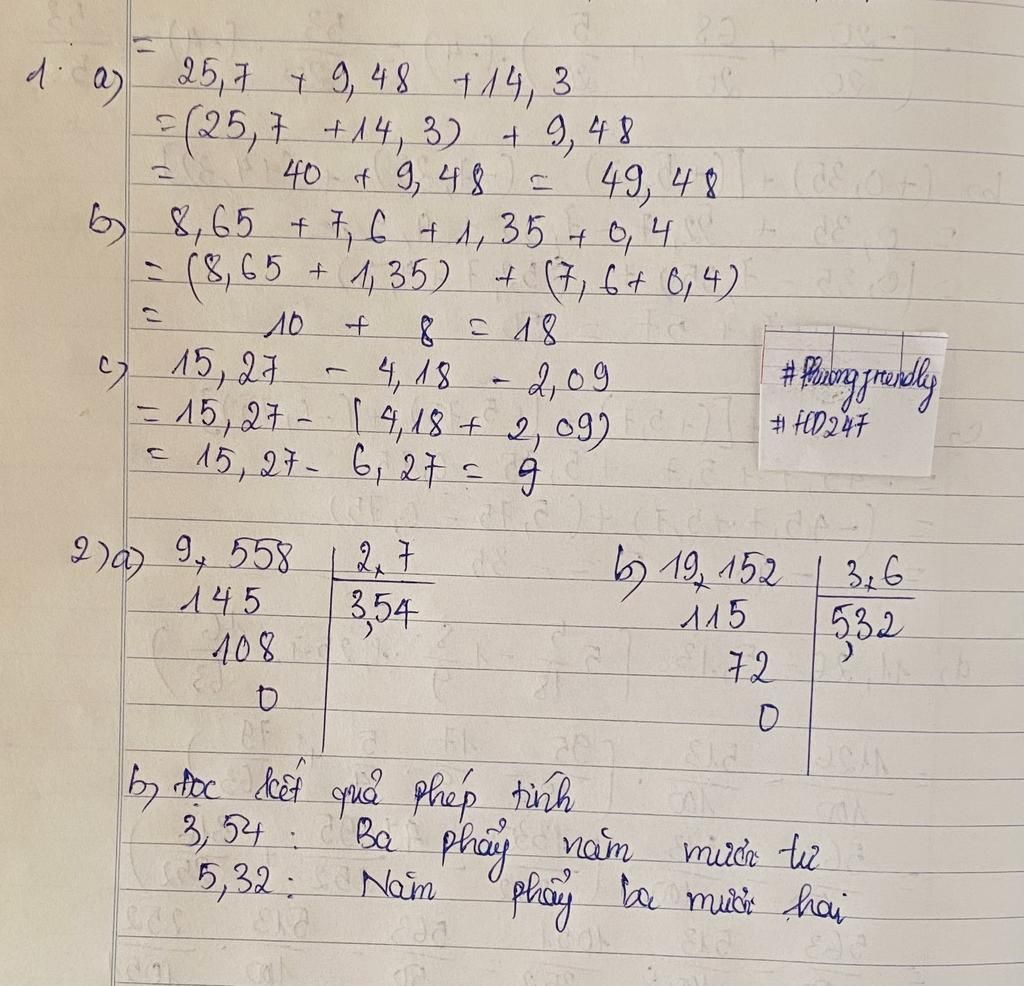 =
1. a) 25,7 + 9,48 + 14,3
= (25,7 + 14,3) + 9,48
= 40 + 9,48 = 49,48
b) 8,65 + 7,6 + 1,35 + 0,4
= (8,65 + 1,35) + (7,6 + 0,4)
= 10 + 8 = 18
c) 15,27 - 4,18 - 2,09
= 15,27 - (4,18 + 2,09)
= 15,27 - 6,27 = 9
#Phuongfriendly
#HD247
2) a) 9,558 2,7
145 3,54
108
0
b) 19,152 3,6
115 5,32
72
0
b) Đọc kết quả phép tính
3,54 : Ba phẩy năm mươi tư
5,32 : Năm phẩy ba mươi hai